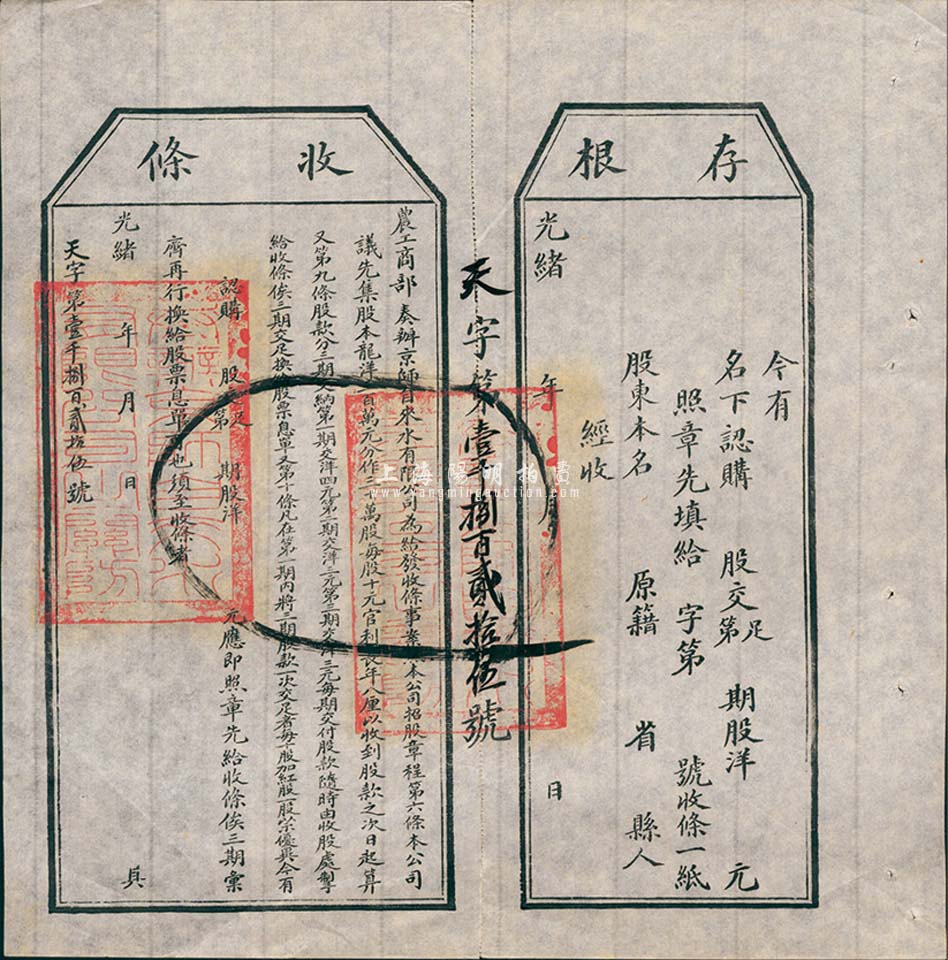 存根
今有
名下認購 股交足第 期股洋 元
照章先填給 字第 號收條一紙
股東本名 原籍 省 縣人
經收
光緒 年 月 日
天字第壹千捌百貳拾伍號
收條
農工商部奏辦京師自來水有限公司為給發收條事案 本公司招股章程第六條本公司
議先集股本龍洋三百萬元分作三十萬股每股十元官利長年八厘以收到股款之次日起算
又第九條股款分三期交納第一期交洋四元第二期交洋三元第三期交洋三元每期交付股款隨時由收股處掣
給收條俟三期交足換給股票息單又第十條凡在第一期內將三期股款一次交足者每十股加紅股一股以示優異今有
認購 股交足第 期股洋 元應即照章先給收條俟三期彙
齊再行換給股票息單可也須至收條者
光緒 年 月 日 具
天字第壹千捌百貳拾伍號
上海陽明拍賣
www.yangmingauction.com